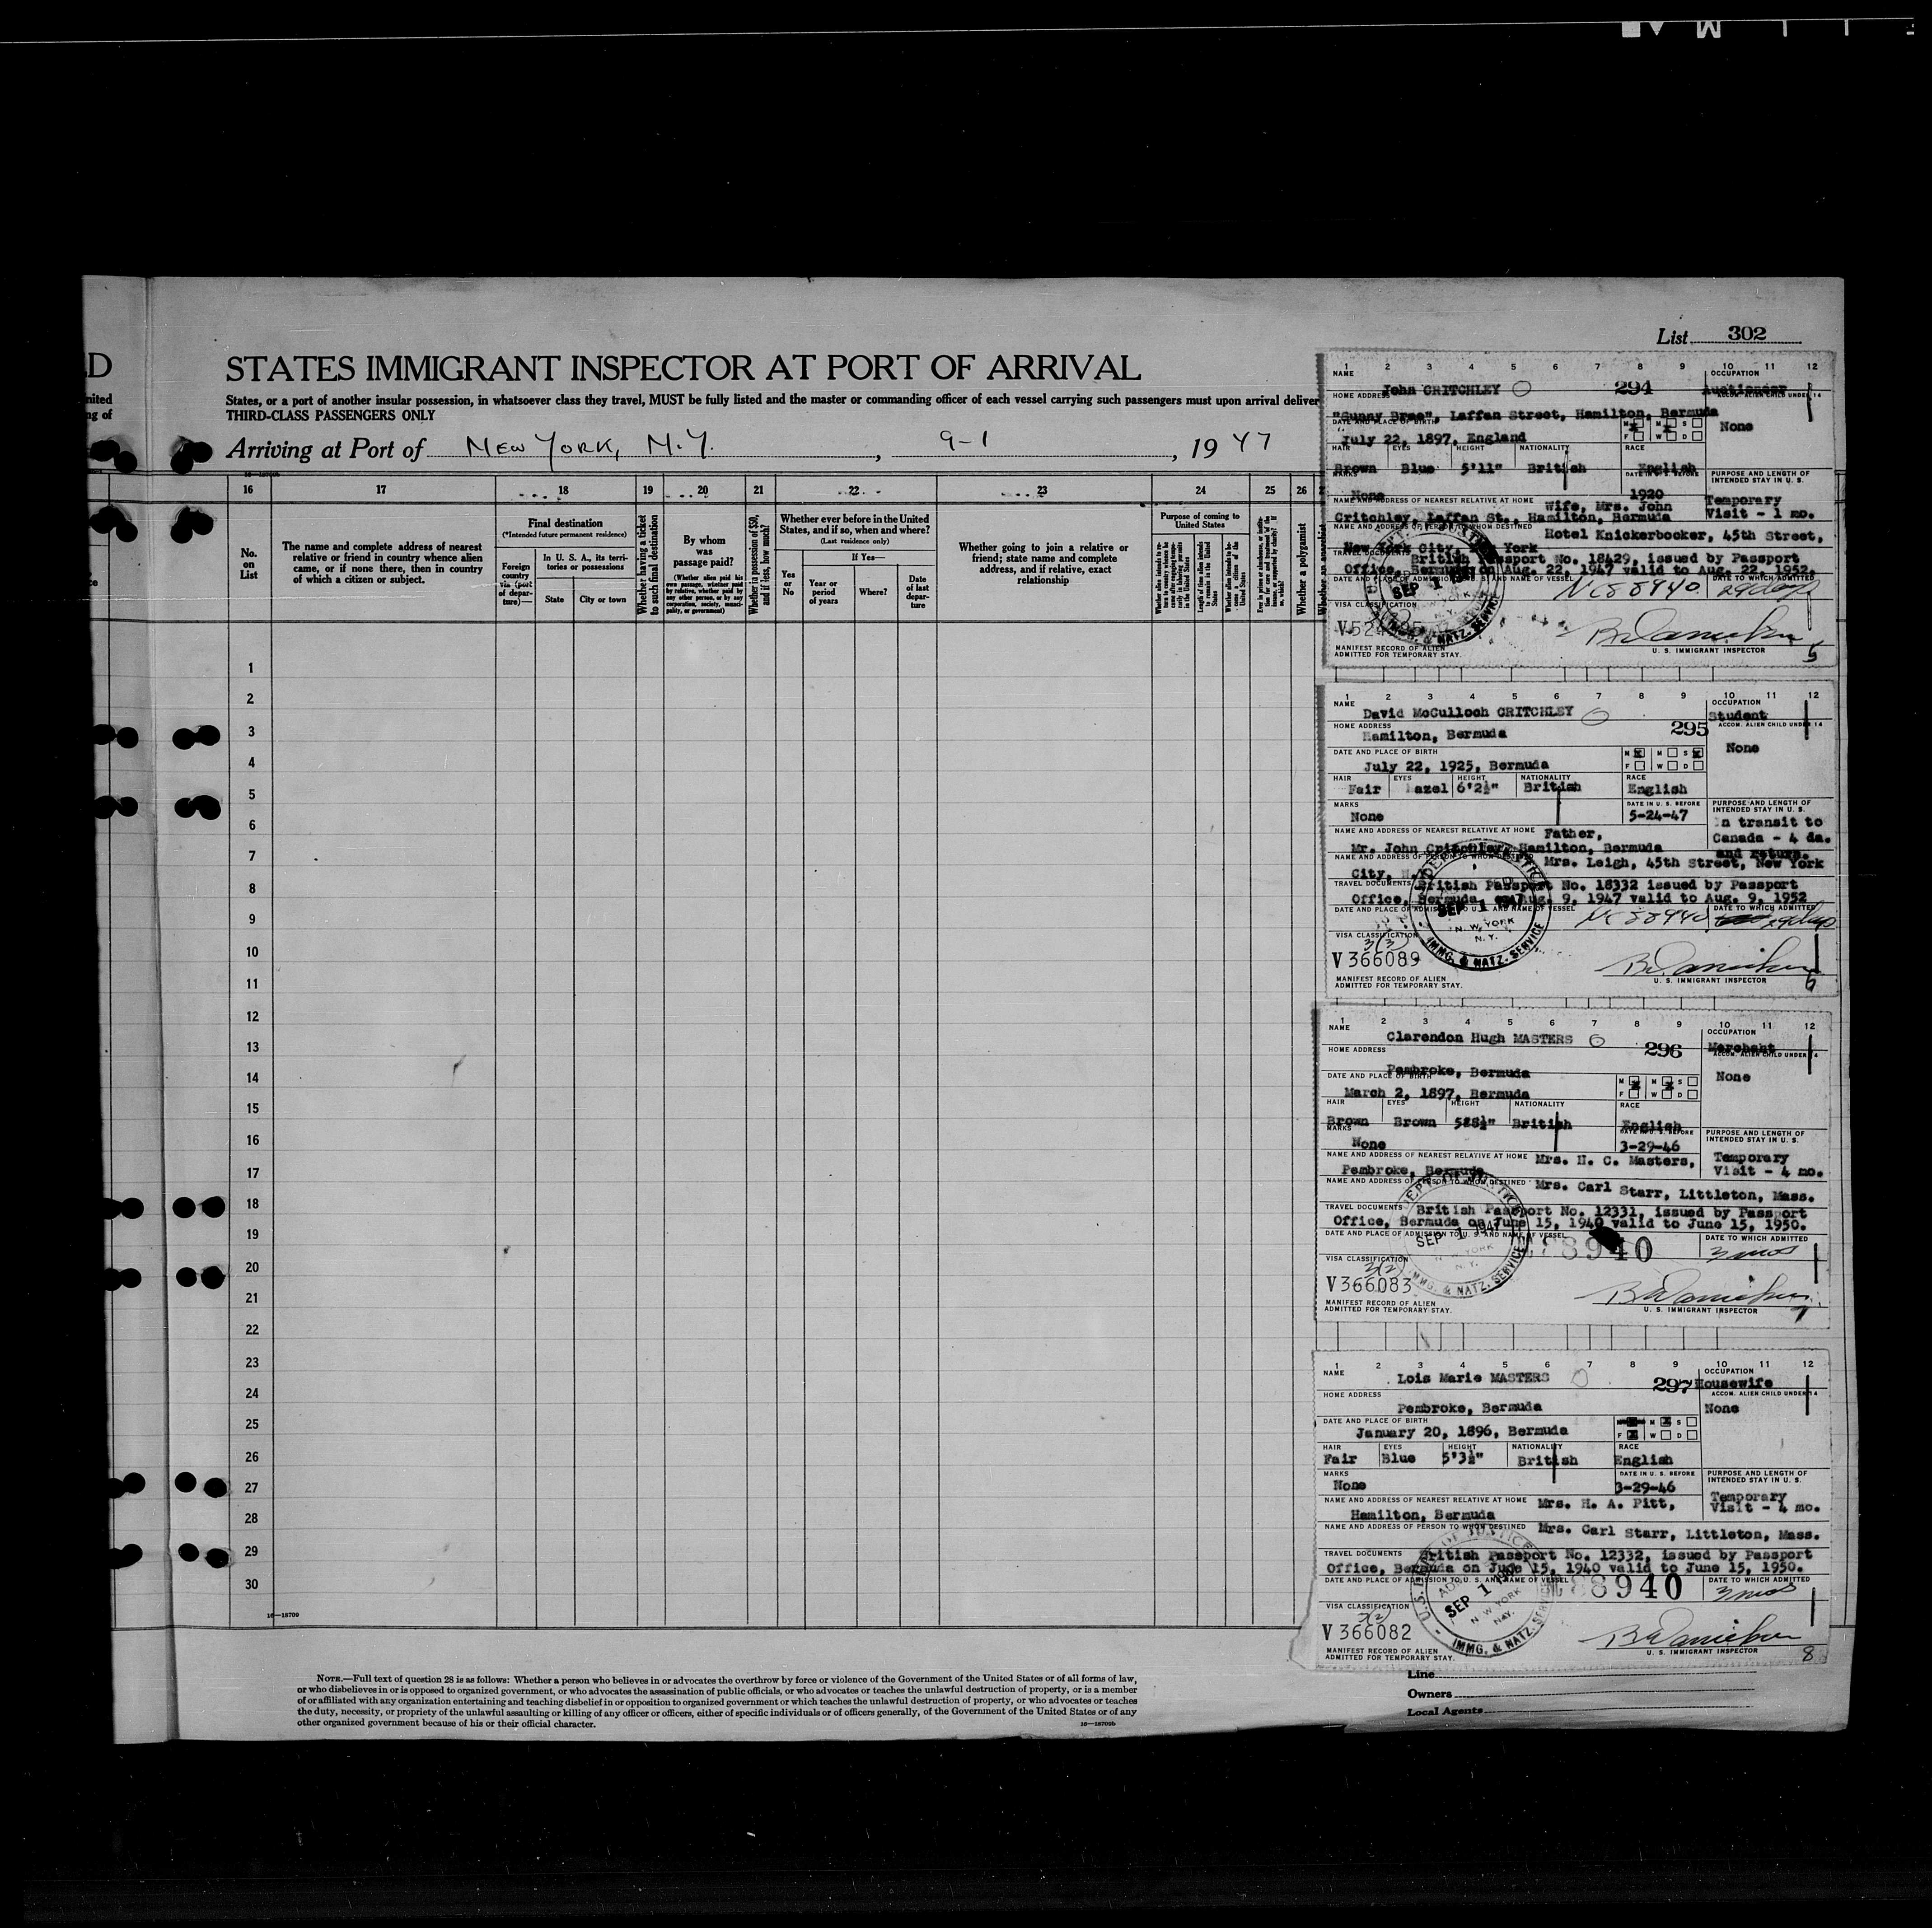 List 302
D
STATES IMMIGRANT INSPECTOR AT PORT OF ARRIVAL
nited
ng of
States, or a port of another insular possession, in whatsoever class they travel, MUST be fully listed and the master or commanding officer of each vessel carrying such passengers must upon arrival deliver
THIRD-CLASS PASSENGERS ONLY
Arriving at Port of NEW YORK, N.Y. , 9-1 , 1947
16 17 18 19 20 21 22 23 24 25 26
No. on List
The name and complete address of nearest
relative or friend in country whence alien
came, or if none there, then in country
of which a citizen or subject.
Final destination
(*Intended future permanent residence)
Foreign country via (port of departure)—
In U. S. A., its territories or possessions
State
City or town
Whether having a ticket to such final destination
By whom was passage paid?
(Whether alien paid his own passage, whether paid by relative, whether paid by any other person, or by any corporation, society, municipality, or government)
Whether in possession of $50, and if less, how much?
Whether ever before in the United States, and if so, when and where?
(Last residence only)
If Yes—
Yes or No
Year or period of years
Where?
Date of last departure
Whether going to join a relative or
friend; state name and complete
address, and if relative, exact
relationship
Purpose of coming to United States
Length of time alien intends to remain in the United States
Whether a polygamist
1
2
3
4
5
6
7
8
9
10
11
12
13
14
15
16
17
18
19
20
21
22
23
24
25
26
27
28
29
30
16—18709
NOTE.—Full text of question 28 is as follows: Whether a person who believes in or advocates the overthrow by force or violence of the Government of the United States or of all forms of law,
or who disbelieves in or is opposed to organized government, or who advocates the assassination of public officials, or who advocates or teaches the unlawful destruction of property, or is a member
of or affiliated with any organization entertaining and teaching disbelief in or opposition to organized government or which teaches the unlawful destruction of property, or who advocates or teaches
the duty, necessity, or propriety of the unlawful assaulting or killing of any officer or officers, either of specific individuals or of officers generally, of the Government of the United States or of any
other organized government because of his or their official character.
16—18709b
1 2 3 4 5 6 7 8 9 10 11 12
NAME John CRITCHLEY 294 OCCUPATION Auctioneer
HOME ADDRESS ACCOM. ALIEN CHILD UNDER 14
"Sunny Brae", Laffan Street, Hamilton, Bermuda
DATE AND PLACE OF BIRTH M M S None
July 22, 1897, England F W D
HAIR EYES HEIGHT NATIONALITY RACE
Brown Blue 5'11" British English
MARKS DATE IN U. S. BEFORE PURPOSE AND LENGTH OF INTENDED STAY IN U. S.
None 1920 Temporary
NAME AND ADDRESS OF NEAREST RELATIVE AT HOME Wife, Mrs. John Visit - 1 mo.
Critchley, Laffan St., Hamilton, Bermuda
NAME AND ADDRESS OF PERSON TO WHOM DESTINED
Hotel Knickerbocker, 45th Street,
New York City, New York
TRAVEL DOCUMENTS British Passport No. 18429, issued by Passport
Office, Bermuda on Aug. 22, 1947 valid to Aug. 22, 1952.
DATE AND PLACE OF ADMISSION TO U. S. AND NAME OF VESSEL NC88940 DATE TO WHICH ADMITTED 29 days
SEP 1 1947
VISA CLASSIFICATION
IMMG. & NATZ. SERVICE
MANIFEST RECORD OF ALIEN
ADMITTED FOR TEMPORARY STAY.
U. S. IMMIGRANT INSPECTOR
5
1 2 3 4 5 6 7 8 9 10 11 12
NAME David McCulloch CRITCHLEY 295 OCCUPATION Student
HOME ADDRESS ACCOM. ALIEN CHILD UNDER 14
Hamilton, Bermuda None
DATE AND PLACE OF BIRTH M M S
July 22, 1925, Bermuda F W D
HAIR EYES HEIGHT NATIONALITY RACE
Fair Hazel 6'2½" British English
MARKS DATE IN U. S. BEFORE PURPOSE AND LENGTH OF INTENDED STAY IN U. S.
None 5-24-47 In transit to
NAME AND ADDRESS OF NEAREST RELATIVE AT HOME Father, Canada - 4 da.
Mr. John Critchley, Hamilton, Bermuda and return.
NAME AND ADDRESS OF PERSON TO WHOM DESTINED Mrs. Leigh, 45th Street, New York
City, N.Y.
TRAVEL DOCUMENTS British Passport No. 18332 issued by Passport
Office, Bermuda on Aug. 9, 1947 valid to Aug. 9, 1952
DATE AND PLACE OF ADMISSION TO U. S. AND NAME OF VESSEL NC88940 DATE TO WHICH ADMITTED 29 days
SEP 1 1947
N.Y.
VISA CLASSIFICATION 3(3)
V 366089
IMMG. & NATZ. SERVICE
MANIFEST RECORD OF ALIEN
ADMITTED FOR TEMPORARY STAY.
U. S. IMMIGRANT INSPECTOR
6
1 2 3 4 5 6 7 8 9 10 11 12
NAME Clarendon Hugh MASTERS 296 OCCUPATION Merchant
HOME ADDRESS ACCOM. ALIEN CHILD UNDER 14
Pembroke, Bermuda None
DATE AND PLACE OF BIRTH M M S
March 2, 1897, Bermuda F W D
HAIR EYES HEIGHT NATIONALITY RACE
Brown Brown 5'8½" British English
MARKS DATE IN U. S. BEFORE PURPOSE AND LENGTH OF INTENDED STAY IN U. S.
None 3-29-46
NAME AND ADDRESS OF NEAREST RELATIVE AT HOME Mrs. H. C. Masters, Temporary
Pembroke, Bermuda Visit - 4 mo.
NAME AND ADDRESS OF PERSON TO WHOM DESTINED Mrs. Carl Starr, Littleton, Mass.
TRAVEL DOCUMENTS British Passport No. 12331, issued by Passport
Office, Bermuda on June 15, 1940 valid to June 15, 1950.
DATE AND PLACE OF ADMISSION TO U. S. AND NAME OF VESSEL 88940 DATE TO WHICH ADMITTED 3 mos
SEP 1 1947
VISA CLASSIFICATION 3(2)
V 366083
IMMG. & NATZ. SERVICE
MANIFEST RECORD OF ALIEN
ADMITTED FOR TEMPORARY STAY.
U. S. IMMIGRANT INSPECTOR
7
1 2 3 4 5 6 7 8 9 10 11 12
NAME Lois Marie MASTERS 297 OCCUPATION Housewife
HOME ADDRESS ACCOM. ALIEN CHILD UNDER 14
Pembroke, Bermuda None
DATE AND PLACE OF BIRTH M S
January 20, 1896, Bermuda F W D
HAIR EYES HEIGHT NATIONALITY RACE
Fair Blue 5'3½" British English
MARKS DATE IN U. S. BEFORE PURPOSE AND LENGTH OF INTENDED STAY IN U. S.
None 3-29-46 Temporary
NAME AND ADDRESS OF NEAREST RELATIVE AT HOME Mrs. H. A. Pitt, Visit - 4 mo.
Hamilton, Bermuda
NAME AND ADDRESS OF PERSON TO WHOM DESTINED Mrs. Carl Starr, Littleton, Mass.
TRAVEL DOCUMENTS British Passport No. 12332, issued by Passport
Office, Bermuda on June 15, 1940 valid to June 15, 1950.
DATE AND PLACE OF ADMISSION TO U. S. AND NAME OF VESSEL 88940 DATE TO WHICH ADMITTED 3 mos
SEP 1 1947
VISA CLASSIFICATION 3(2)
V 366082
IMMG. & NATZ. SERVICE
MANIFEST RECORD OF ALIEN
ADMITTED FOR TEMPORARY STAY.
U. S. IMMIGRANT INSPECTOR
8
Line
Owners
Local Agents